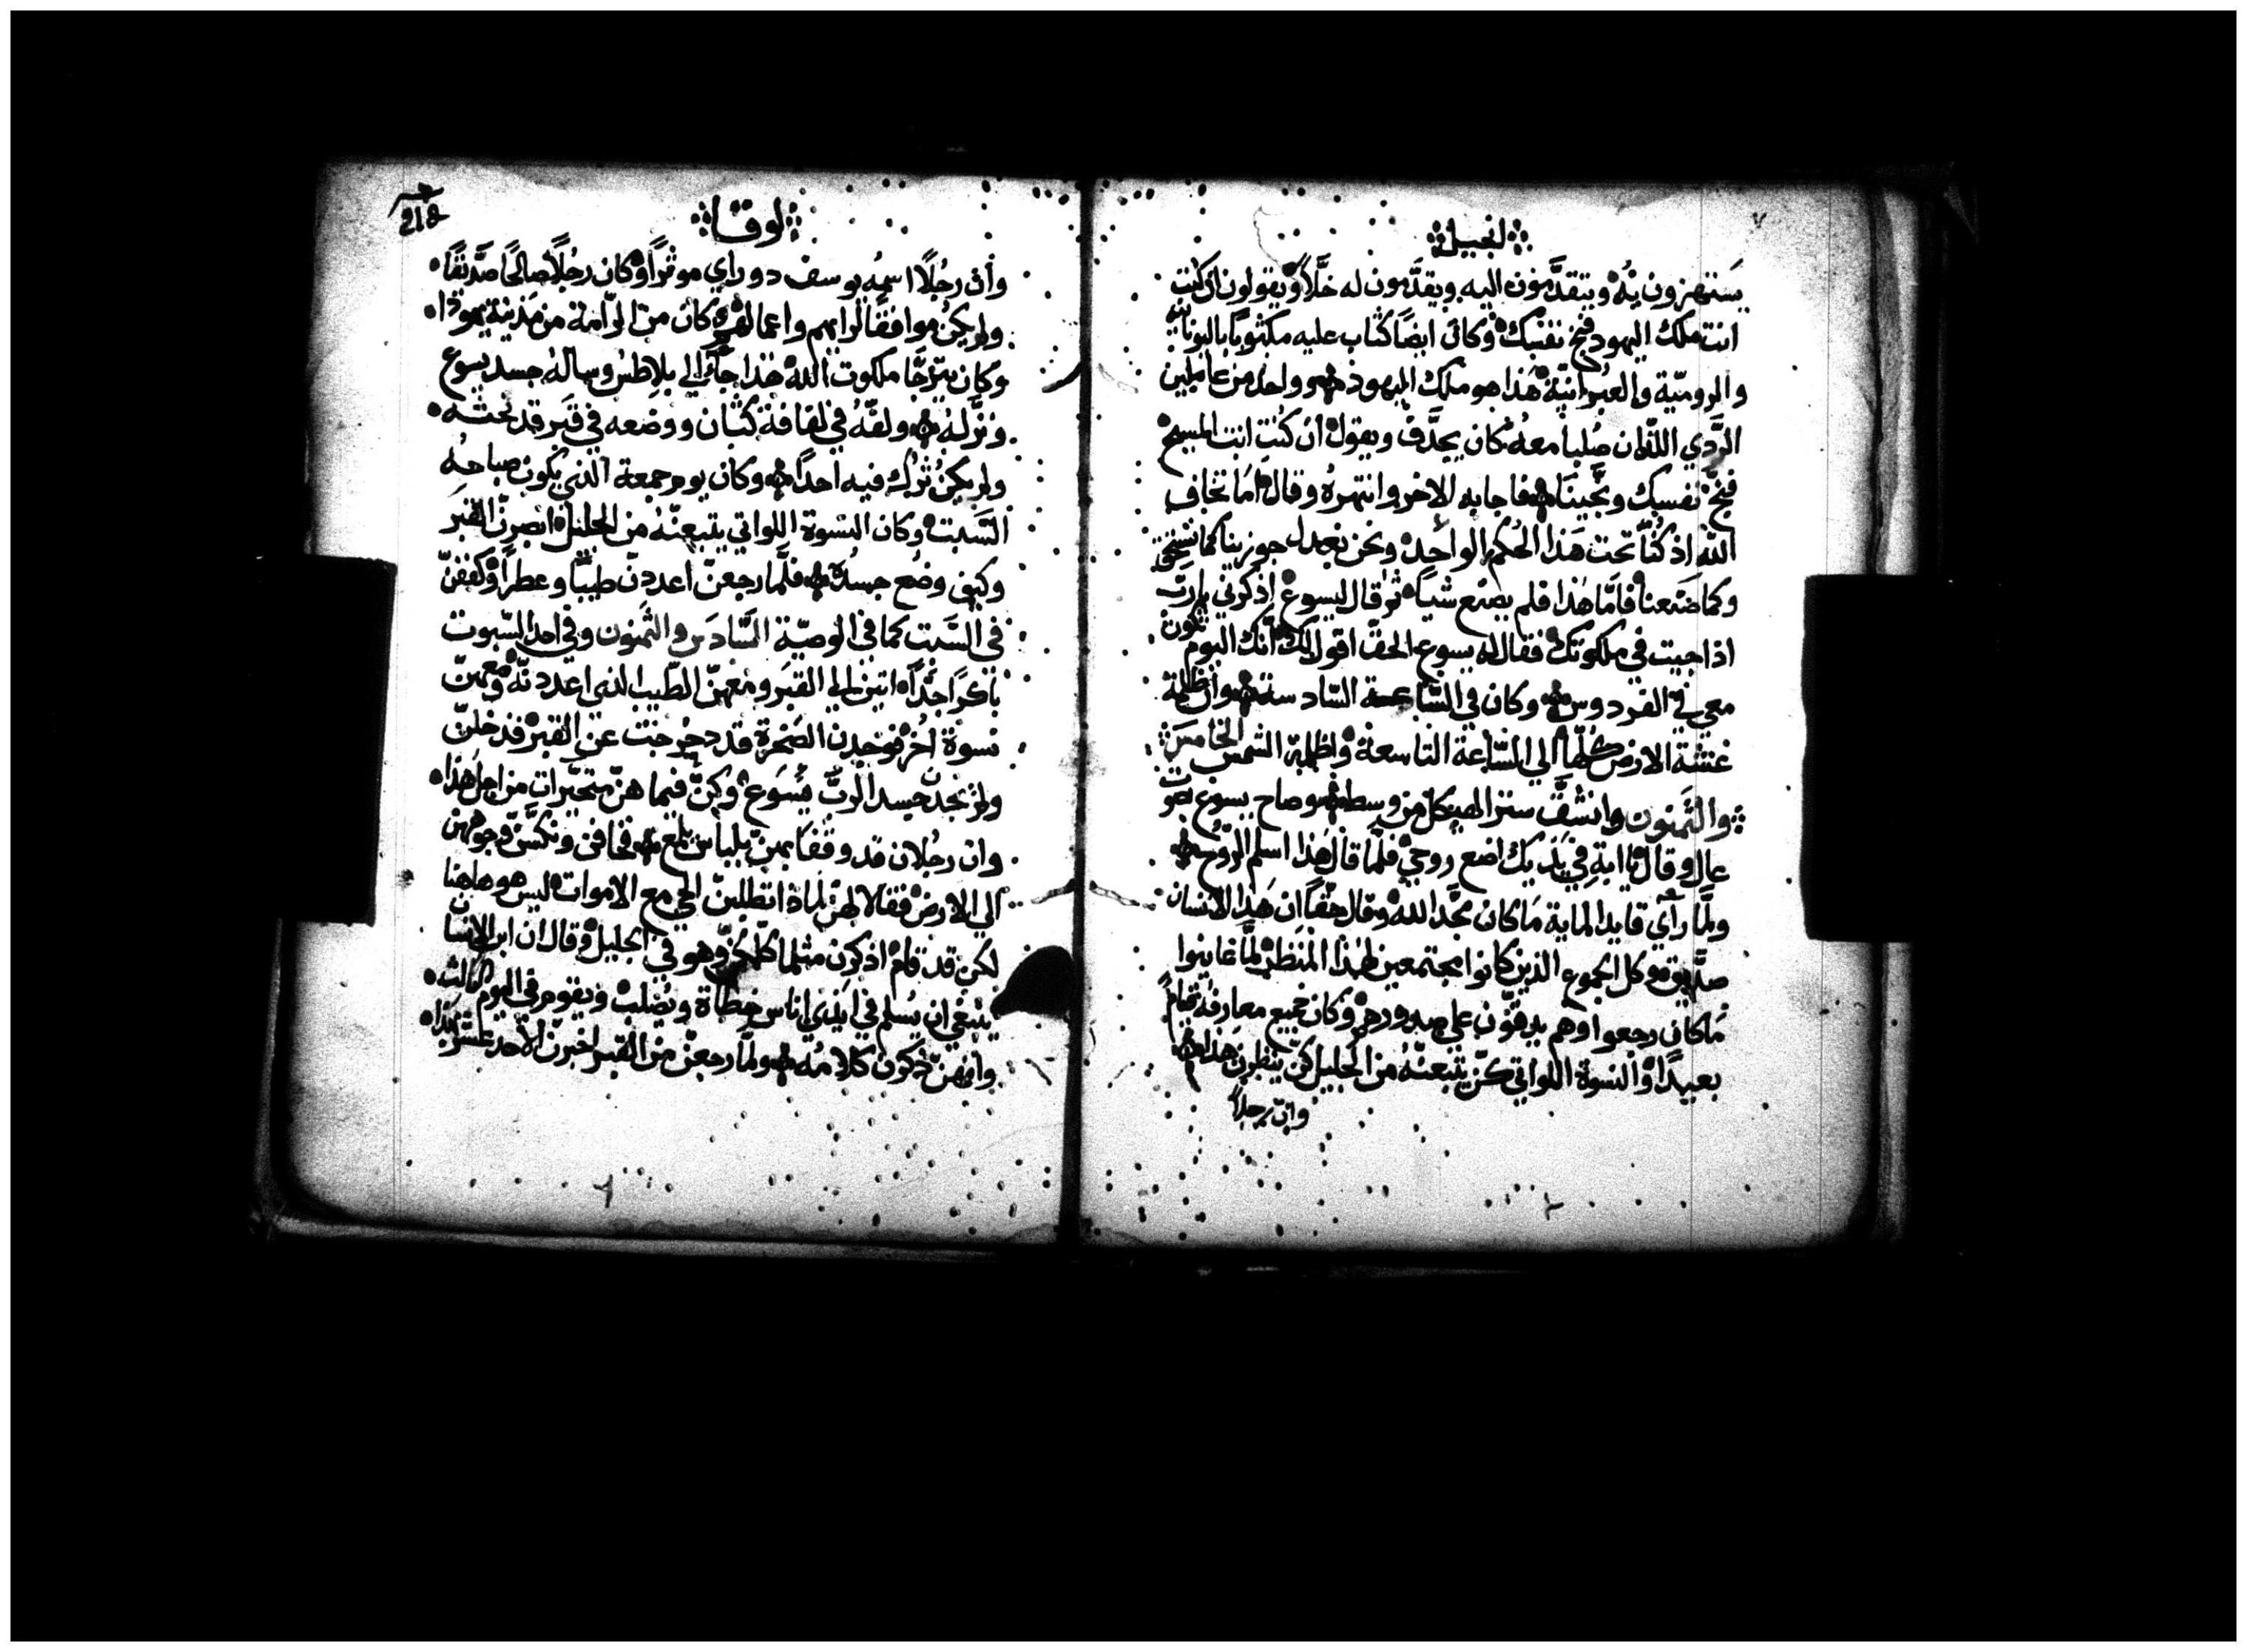 انجيل
يستهزون به ويتقدمون اليه ويقدمون له خلاً ويقولون ان كنت
انت ملك اليهود فنج نفسك وكان ايضاً كتاب عليه مكتوباً باليونانية
والرومية والعبرانية هذا هو ملك اليهود وواحد من عاملين
الردي اللذان صلبا معه كان يجدف ويقول ان كنت انت المسيح
فنج نفسك ونجينا فاجابه الاخر وانتهره وقال اما تخاف
الله اذ كنا تحت هذا الحكم الواحد ونحن بعدل جوزينا كما نستحق
وكما صنعنا فاما هذا فلم يصنع شياً ثم قال ليسوع اذكرني يارب
اذا جيت في ملكوتك فقال له يسوع الحق اقول لك انك اليوم تكون
معي في الفردوس وكان في الساعة السادسة وان ظلمة
غشت الارض كلها الي الساعة التاسعة واظلمة الشمس الخامس
والثمنون وانشق ستر الهيكل من وسطه وصاح يسوع بصوت
عال وقال يا ابة في يديك اضع روحي فلما قال هذا اسلم الروح
ولما رأي قايد الماية ما كان مجد الله وقال حقاً ان هذا الانسان
صديق وكل الجموع الذين كانوا مجتمعين لهذا المنظر لما عاينوا
ما كان رجعوا وهم يدقون علي صدورهم وكان جميع معارفه قيام
بعيداً والنسوة اللواتي كن يتبعنه من الجليل كن ينظرن هذا
وان رجلاً
218
لوقا
وان رجلاً اسمه يوسف دو راي موثراً وكان رجلاً صالحاً صديقاً
ولم يكن موافقاً لرايهم واعمالهم كان من الرامة من مدينة يهوذا
وكان يترجا ملكوت الله هذا جاء الي بلاطس وساله جسد يسوع
ونزله ولفه في لفافة كتان ووضعه في قبر قد نحته
ولم يكن ترك فيه احداً وكان يوم جمعة الذي يكون صباحه
السبت وكان النسوة اللواتي يتبعنه من الجليل ابصرن القبر
وكيف وضع جسده فلما رجعن اعددن طيباً وعطراً وكففن
في السبت كما في الوصية السادس والثمنون وفي احد السبوت
باكراً جداً اتين الي القبر ومعهن الطيب الذي اعددنه ومعهن
نسوة اخر فوجدن الصخرة قد دحرجت عن القبر فدخلن
ولم يجدن جسد الرب يسوع وكن فيما هن متحيرات من اجل هذا
وان رجلان قد وقفا بهن بلباس يلمع فخافن ونكسن وجوههن
الي الارض فقالا لهن لماذا تطلبن الحي مع الاموات ليس هو هاهنا
لكن قد قام اذكرن مثلما كلمكن وهو في الجليل وقال ان ابن الانسان
ينبغي ان يسلم في ايدي اناس خطاة ويصلب ويقوم في اليوم الثالث
وانهن ذكرن كلامه ولما رجعن من القبر اخبرن الاحد عشر بهذا